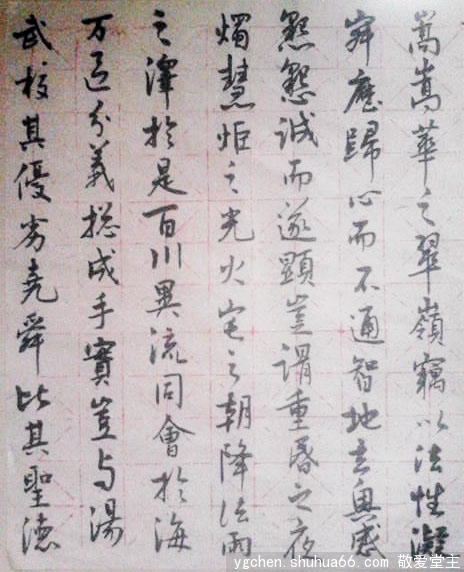 嵩嵩華之翠嶺竊以法性凝
寂靡歸心而不通智地玄奧感
懇懇誠而遂顯豈謂重昏之夜
燭慧炬之光火宅之朝降法雨
之澤於是百川異流同會於海
万區分義揔成乎實豈与湯
武校其優劣堯舜比其聖德
ygchen.shuhua66.com 敬爱堂主